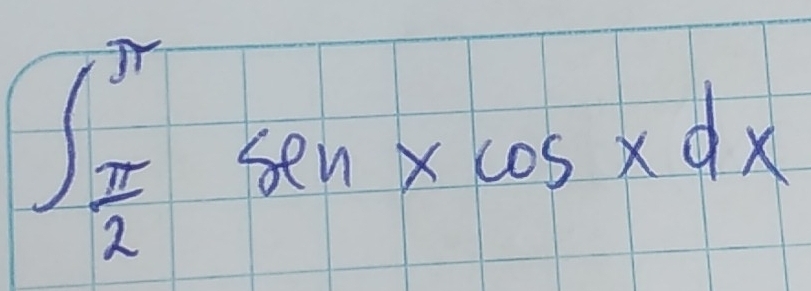 ∫_{π/2}^{π} sen x cos x dx